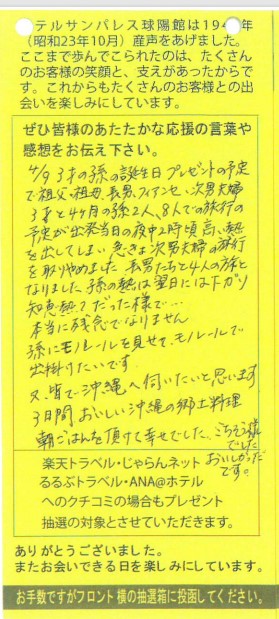 テルサンパレス球陽館は194 年
(昭和23年10月)産声をあげました。
ここまで歩んでこられたのは、たくさん
のお客様の笑顔と、支えがあったからで
す。これからもたくさんのお客様との出
会いを楽しみにしています。
ぜひ皆様のあたたかな応援の言葉や
感想をお伝え下さい。
4/9 3才の孫の誕生日プレゼントの予定
で祖父・祖母、長男、フィアンセ、次男夫婦
3才と4ヶ月の孫2人、8人での旅行の
予定が出発当日の夜中2時頃高い熱
を出してしまい急きょ次男夫婦の旅行
を取りやめました 長男たちと4人の旅と
なりました 孫の熱は翌日には下がり
知恵熱?だった様で...
本当に残念でなりません
孫にモノレールを見せて、モノレールで
出掛けたいです。
又、皆で沖縄へ伺いたいと思います
3日間おいしい沖縄の郷土料理
朝ごはんを頂けて幸せでした、ごちそう様
でした
おいしかった
です。
楽天トラベル・じゃらんネット
るるぶトラベル・ANA@ホテル
へのクチコミの場合もプレゼント
抽選の対象とさせていただきます。
ありがとうございました。
またお会いできる日を楽しみにしています。
お手数ですがフロント横の抽選箱に投函してください。